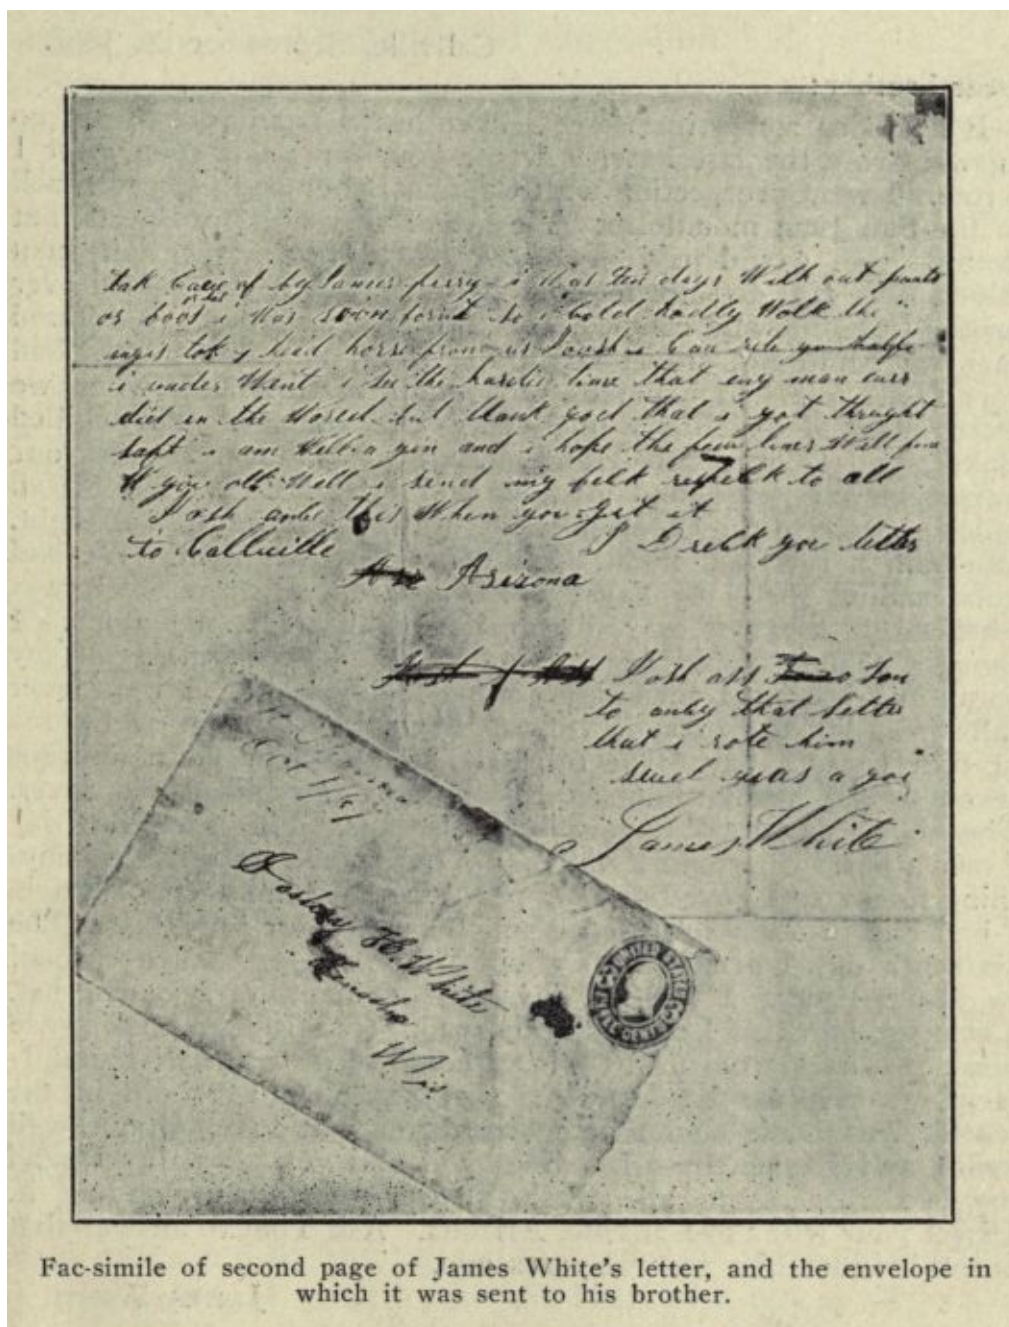 tak Care of by James ferry i was ten days With out pants
or boos i was soon bornt so i Cold hadly Walk the
ingis tok my head horse from us Josh i Can rite you halfe
i under Went i see the hardis time that eny man ever
did in the World but thank god that i got thrught
saft i am Well a gin and i hope the few lines Will fin
you all Well i send my to all
Josh this When you git it
to Callville
Drelk you letter
Arizona
Josh ass Tom
to that letter
that i rote him
a goi
James White
Oct 1/67
Joshay H. White
Kenosha
Wis
UNITED STATES
Fac-simile of second page of James White's letter, and the envelope in
which it was sent to his brother.